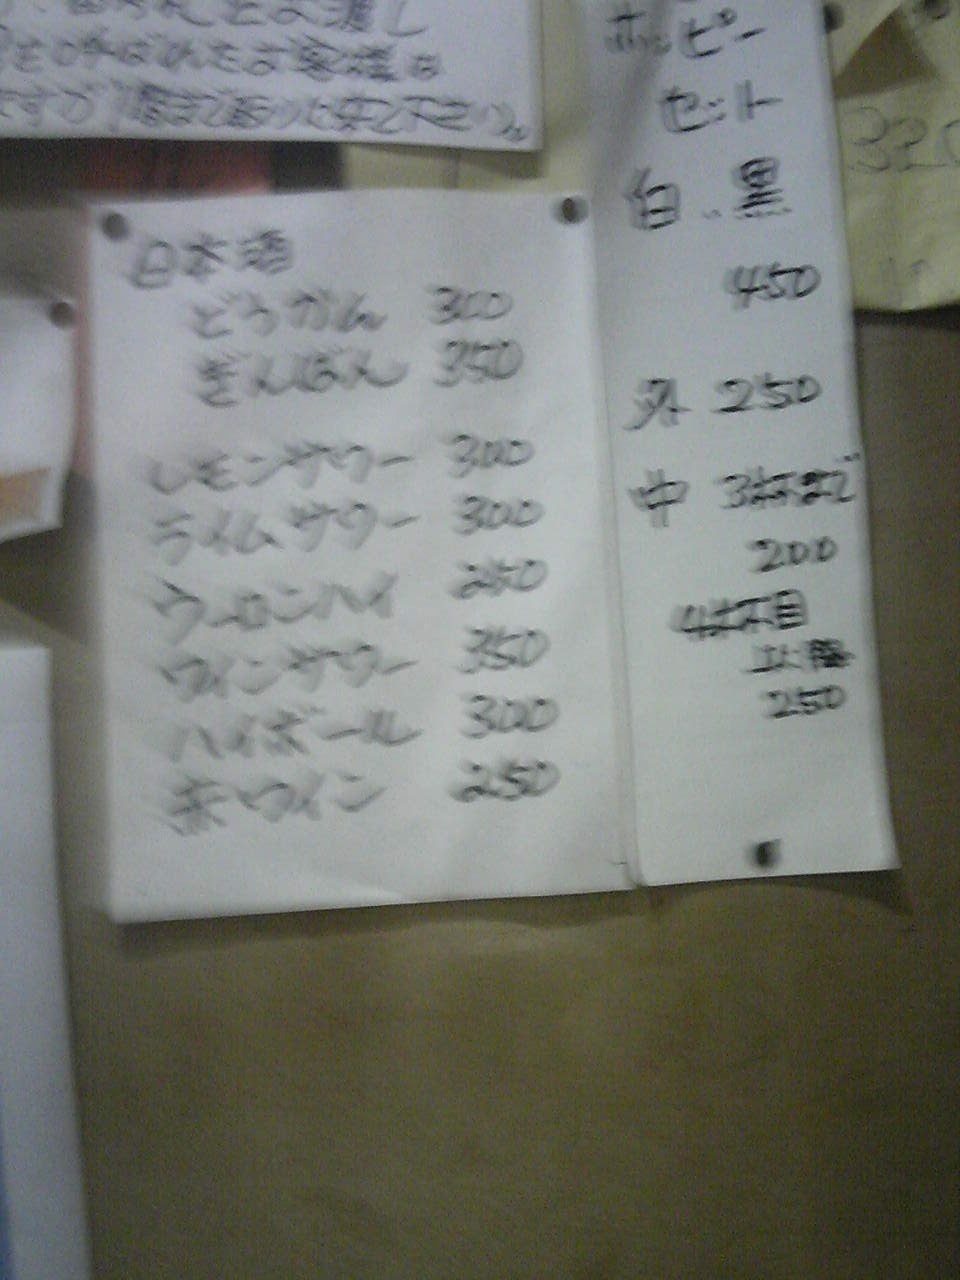 お渡し
呼ばれたお客様は
ですが1階まで取りに来て下さい。
日本酒
どうかん 300
ぎんばん 350
レモンサワー 300
ライムサワー 300
ウーロンハイ 250
ワインサワー 350
ハイボール 300
赤ワイン 250
ホッピー
セット
白、黒
450
外 250
中 3杯まで
200
4杯目
以降
250
320